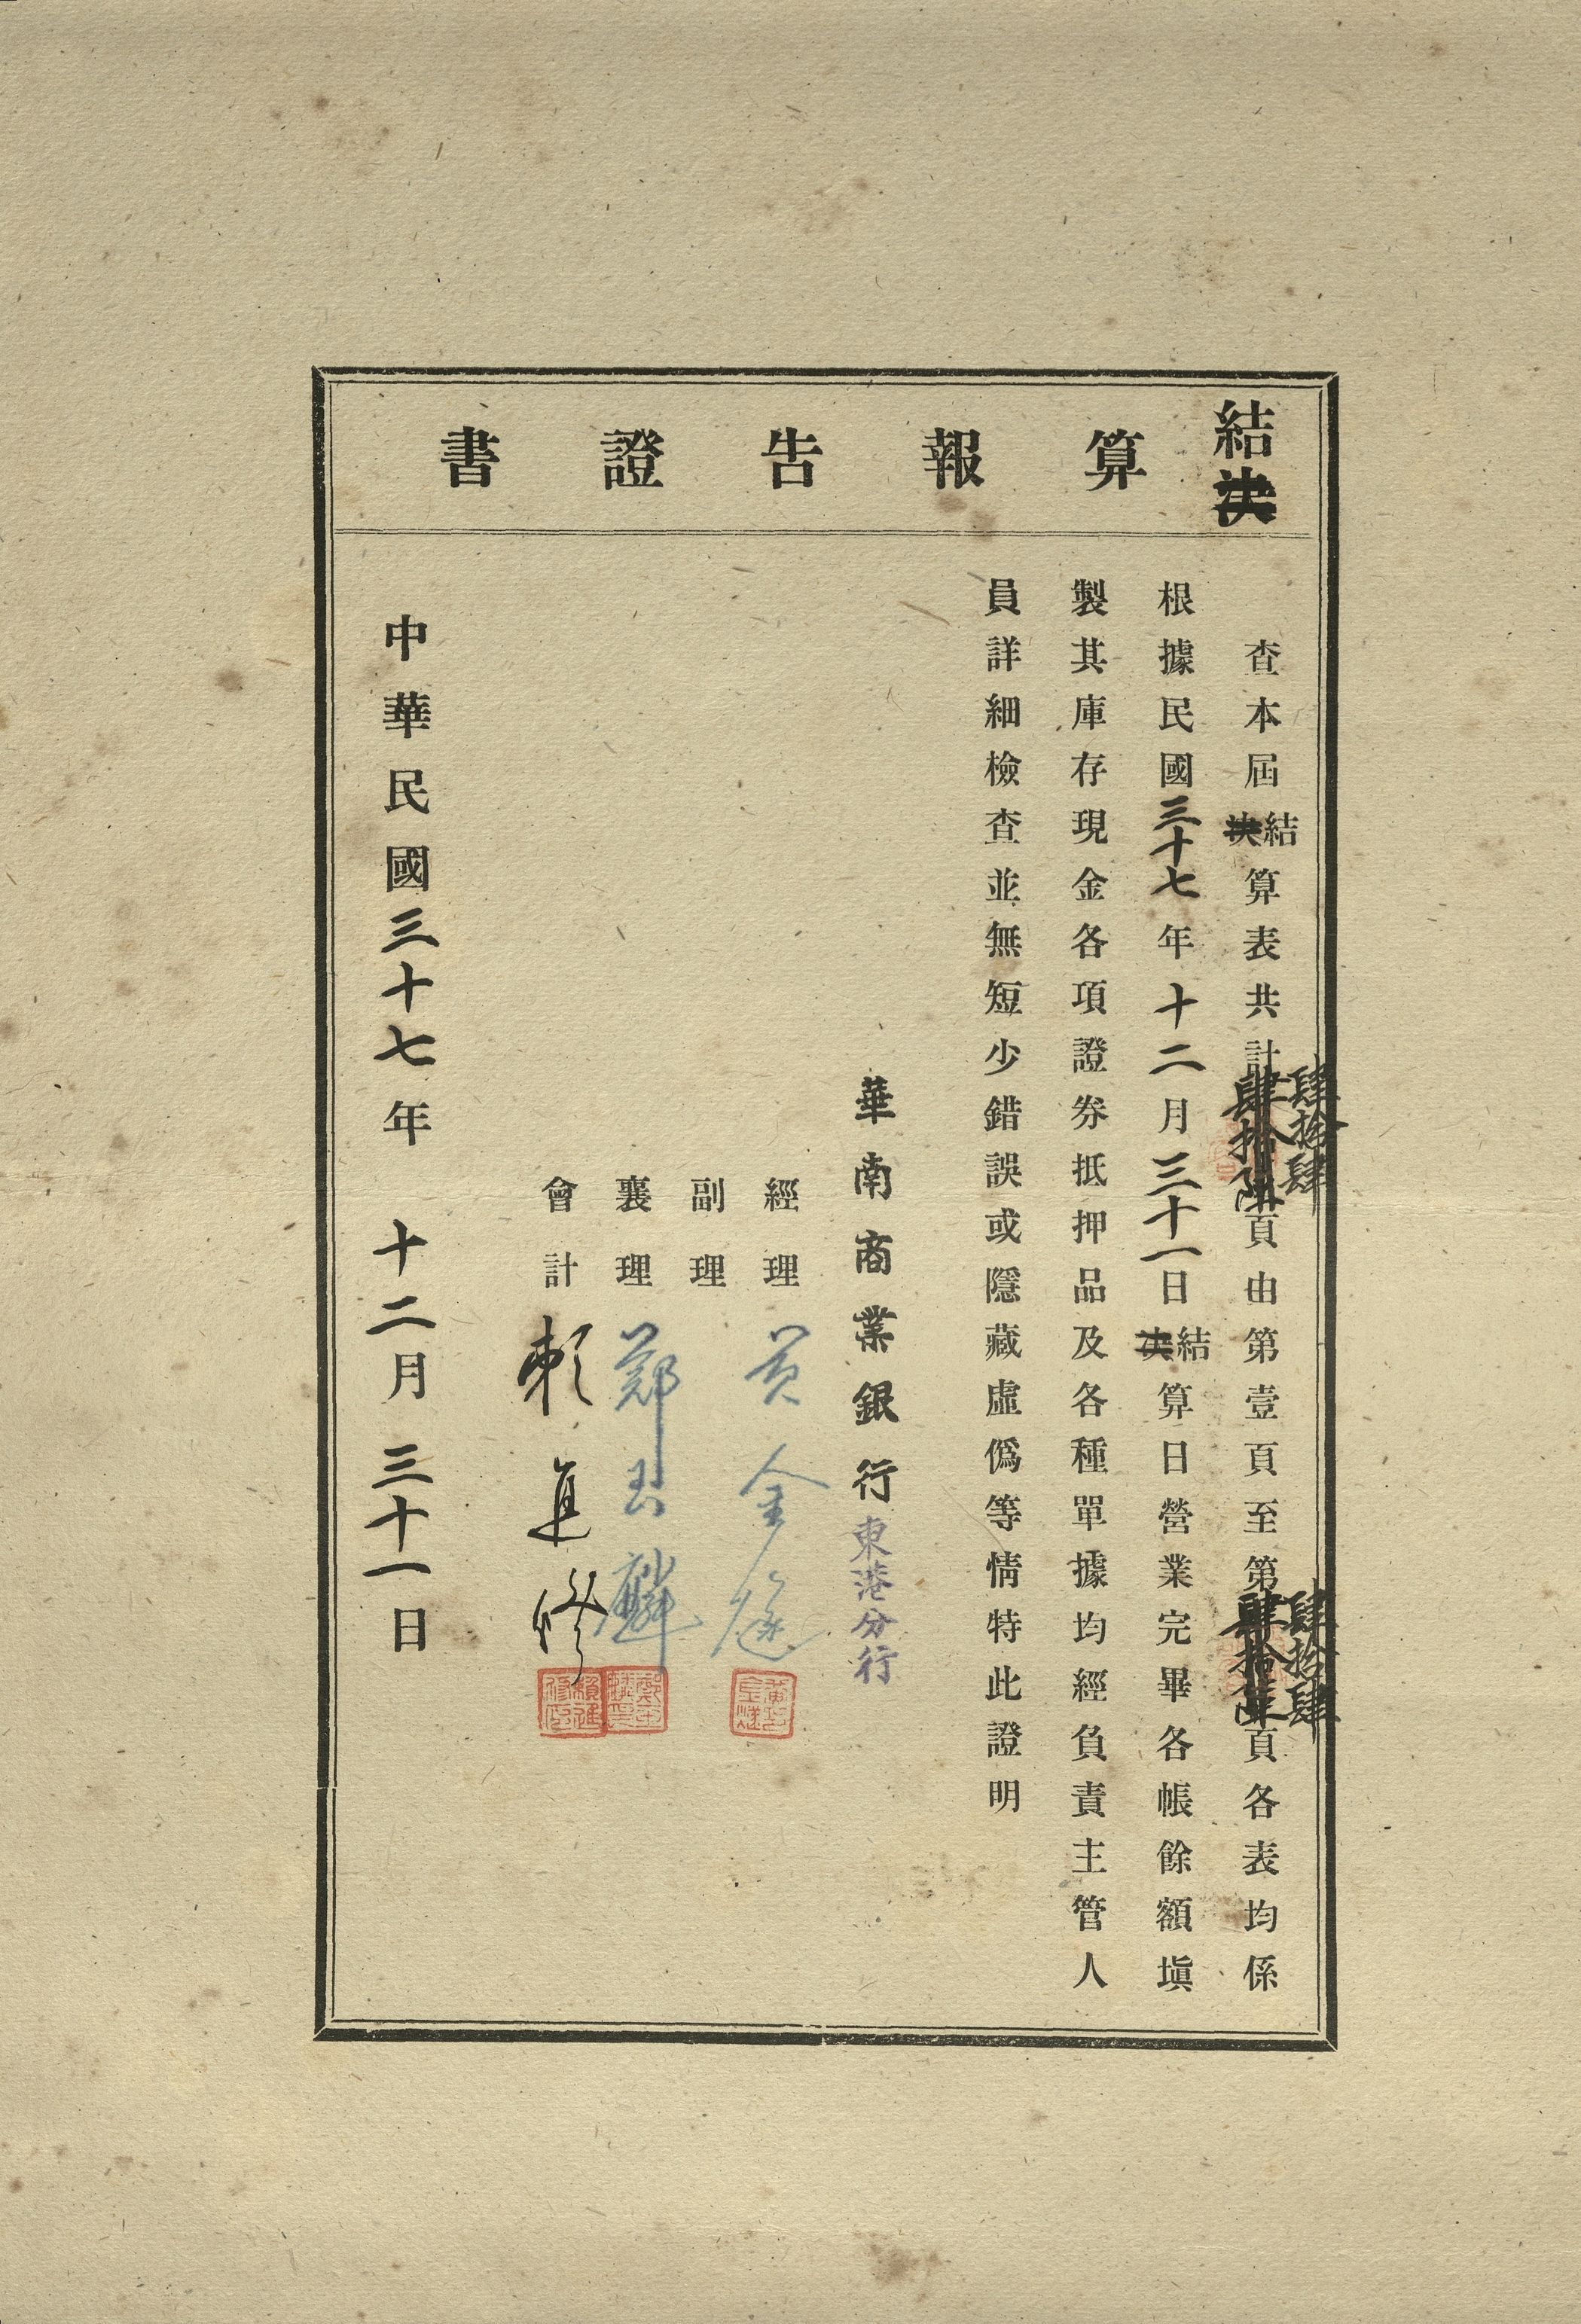 結算報告證書
查本屆結算表共計肆拾肆頁由第壹頁至第肆拾肆頁各表均係
根據民國三十七年十二月三十一日結算日營業完畢各帳餘額塡
製其庫存現金各項證券抵押品及各種單據均經負責主管人
員詳細檢查並無短少錯誤或隱藏虛僞等情特此證明
華南商業銀行東港分行
經理 黃金
副理
襄理 鄭玉麟
會計 賴進修
中華民國三十七年十二月三十一日